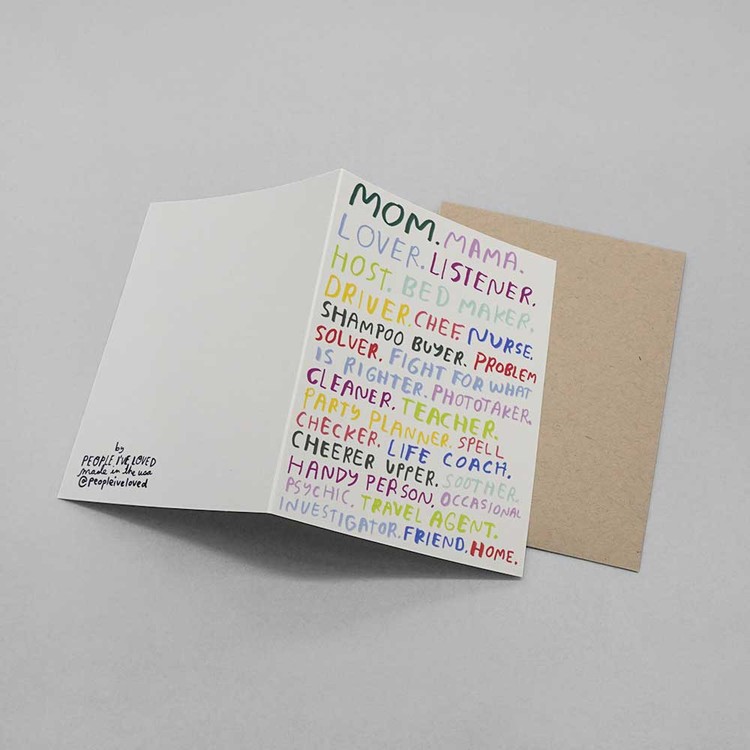 MOM. MAMA.
LOVER. LISTENER.
HOST. BED MAKER.
DRIVER. CHEF. NURSE.
SHAMPOO BUYER. PROBLEM
SOLVER. FIGHT FOR WHAT
IS RIGHTER. PHOTOTAKER.
CLEANER. TEACHER.
PARTY PLANNER. SPELL
CHECKER. LIFE COACH.
CHEERER UPPER. SOOTHER.
HANDY PERSON. OCCASIONAL
PSYCHIC. TRAVEL AGENT.
INVESTIGATOR. FRIEND. HOME.
by
PEOPLE I'VE LOVED
made in the usa
@peopleiveloved